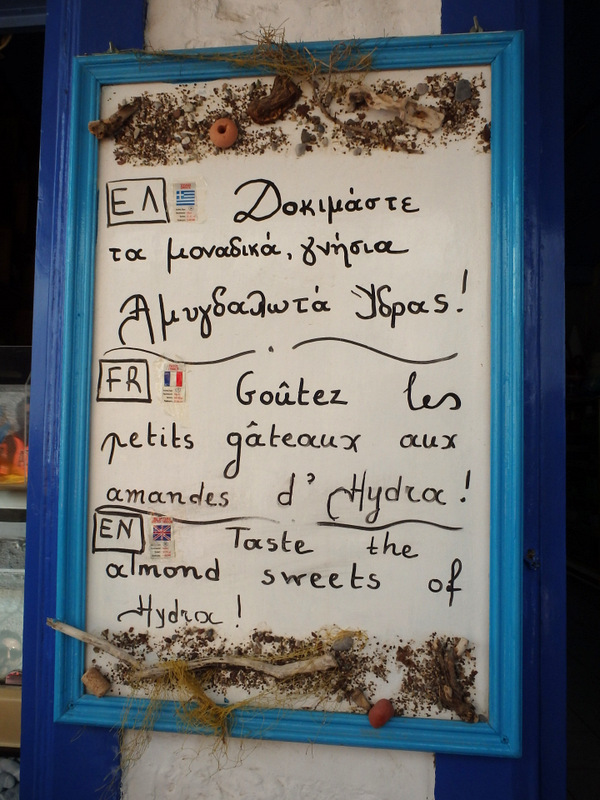 ΕΛ Δοκιμάστε
τα μοναδικά, γνήσια
Αμυγδαλωτά Ύδρας!
FR Goûtez les
petits gâteaux aux
amandes d' Hydra!
EN Taste the
almond sweets of
Hydra!